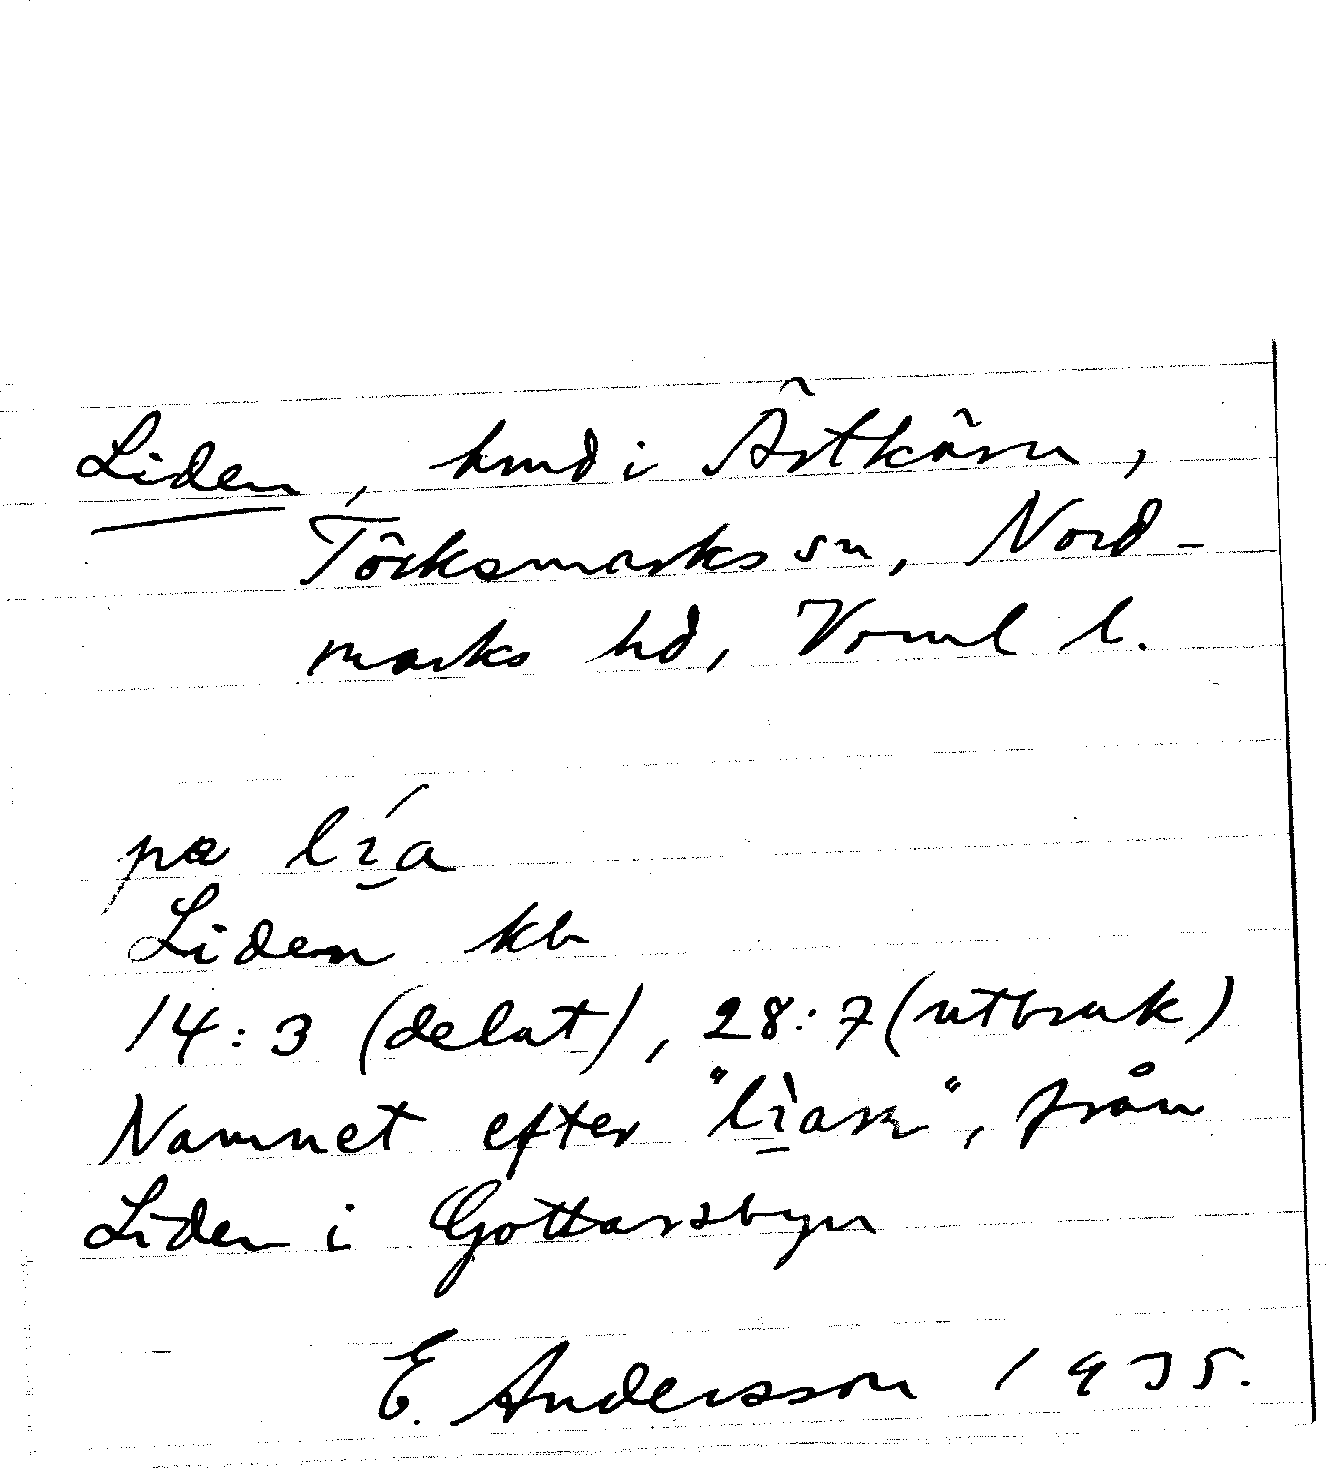 Liden, hmd i Ärtkärn,
Töcksmarks sn, Nord-
marks hd, Verml l.
pɑ lía
Liden kb
14:3 (delat), 28:7 (utbruk)
Namnet efter "lìarn", från
Liden i Gottarsbyn
E. Andersson 1935.